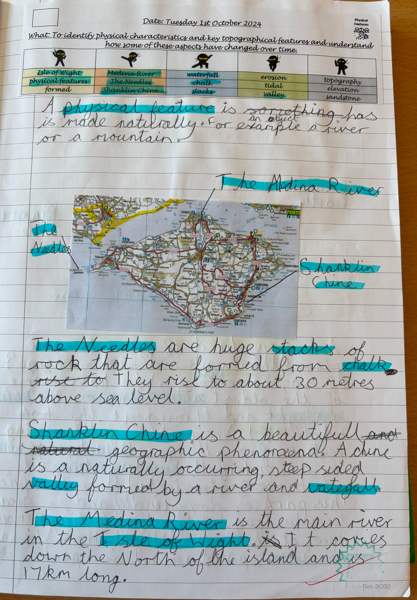 Date: Tuesday 1st October 2024
What: To identify physical characteristics and key topographical features and understand
how some of these aspects have changed over time.
Isle of Wight Medina River waterfall erosion topography
physical features The Needles chalk tidal elevation
formed Shanklin Chine stacks valley sandstone
A physical feature is something has
an object
is made naturally. For example a river
or a mountain.
The Medina River
The
Needles
Shanklin
Chine
The Needles are huge stacks of
rock that are formed from chalk.
rise to They rise to about 30 metres
above sea level.
Shanklin Chine is a beautifull and
natural geographic phenomena. A chine
is a naturally occurring, step sided
valley formed by a river and waterfall
The Medina River is the main river
in the Isle of Wight. It comes
down the North of the island and is
17km long.